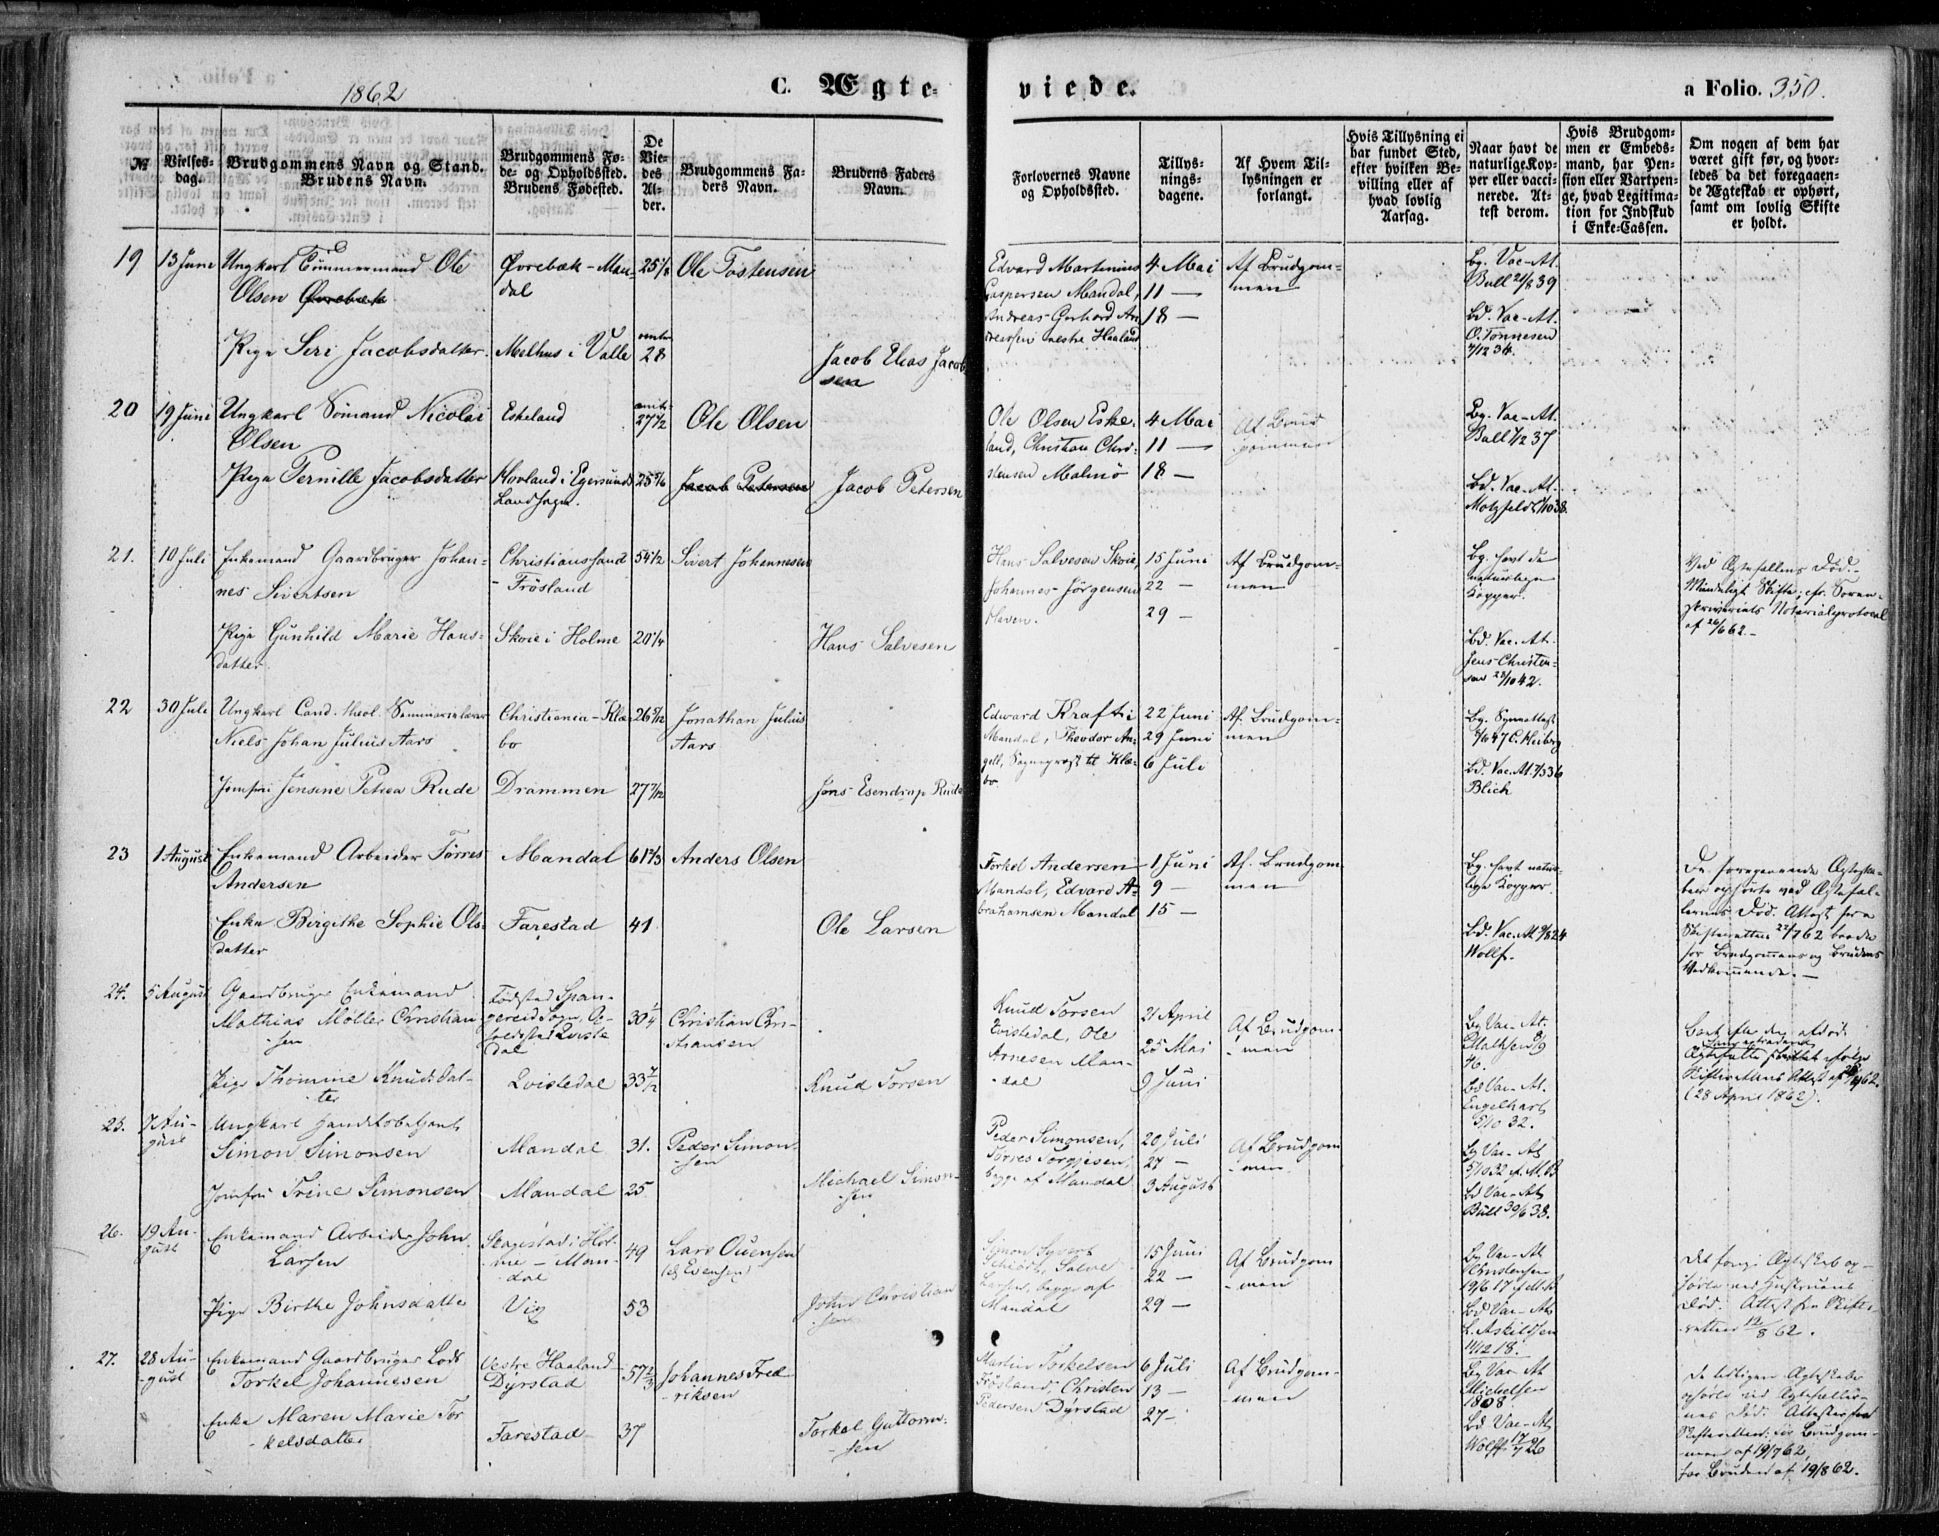 1862
C. Ægte-
viede.
a Folio. 350.
№
Vielses-
dag.
Brudgommens Navn og Stand.
Brudens Navn.
Brudgommens Fø-
de- og Opholdssted.
Brudens Fødested.
De
Vie-
des
Al-
der.
Brudgommens Fa-
ders Navn.
Brudens Faders
Navn.
Forlovernes Navne
og Opholdssted.
Tillys-
nings-
dagene.
Af Hvem Til-
lysningen er
forlangt.
Hvis Tillysning ei
har fundet Sted,
efter hvilken Be-
villing eller af
hvad lovlig
Aarsag.
Naar havt de
naturlige Kop-
per eller vacci-
nerede. At-
test derom.
Hvis Brudgom-
men er Embeds-
mand, har Pen-
sion eller Vartpen-
ge, hvad Legitima-
tion for Indskud
i Enke-Cassen.
Om nogen af dem har
været gift før, og hvor-
ledes da det foregaaen-
de Ægteskab er ophørt,
samt om lovlig Skifte
er holdt.
19 13 June Ungkarl Tømmermand Ole
Olsen Øvrebæk
Øvrebæk - Man
dal
25 1/8
Ole Tostensen
Edvard Martinius
Caspersen Mandal,
Andreas Gerhard An
dreassen vestre Haaland
4 Mai
11 —
18 —
Af Brudgom-
men
Bg. Vac-At.
Bull 21/8 39
Pige Seri Jacobsdatter
Melhus i Valle
28
Jacob Elias Jacob
sen
Bd. Vac-At.
O. Tønnesen
34.
20 19 Juni Ungkarl Sømand Nicolai
Olsen
Eskeland
27 1/2
Ole Olsen
Ole Olsen Eske-
land, Christian Chri-
stensen Malmö
4 Mai
11 —
18 —
Af Brud
gommen
Bg. Vac-At.
Bull 37
Pige Pernille Jacobsdatter
Hovland i Egersunds
Landsogn.
25 5/6
Jacob Petersen
Jacob Petersen
Bd. Vac-At.
Motzfeldt 38.
21. 10 Juli Enkemand Gaardbruger Johan-
nes Sivertsen
Christianssand
- Frösland
54 1/2
Sivert Johannesen
Hans Salvesen Skoie,
Johannes Jörgensen
Haven.
15 Juni
22 —
29 —
Af Brudgom-
men
Bg. havt de
naturlige
Kopper.
Ved Ægtefællens Død.
Mindeligt Skifte, cfr. Soren-
skriveriets Notarialprotocol
af 26/6 62 —
Pige Gunhild Marie Hans-
datter
Skoie i Holme
20 1/4
Hans Salvesen
Bd. Vac. At.
Jens Christen-
sen 42.
22 30 Juli Ungkarl Cand. theol. Seminarielærer
Niels Johan Julius Aars
Christiania - Klæ
bo
26 5/12
Jonathan Julius
Aars
Edward Kraft i
Mandal, Theodor An-
gell, Sognepræst til Klæ-
bo
22 Juni
29 Juni
6 Juli
Af Brudgom-
men
Jomfru Jensine Petrea Rude
Drammen
27 7/12
Jens Esendrup Rude
Bd. Vac. At. 36
Blich
23 1 August Enkemand Arbeider Tørres
Andersen
Mandal
61 2/3
Anders Olsen
Torkel Andersen
Mandal, Edvard A-
brahamsen Mandal
1 Juni
9 —
15 —
Af. Brudgom
men
Bg. havt natur-
lige Kopper.
De foregaaende Ægteska-
ber ophørte ved Ægtefæl-
lernes Død. Attest fra
Skifteretten 22/7 62 baade
for Brudgommens og Brudens
Vedkommende. —
Enke Birgithe Sophie Ols-
datter
Farestad
41
Ole Larsen
Bd. Vac. At 24
Wolff.
24. 5 August Gaardbruger Enkemand
Mathias Møller Christian
-sen
Fødsted Span-
gereid Sogn, Op-
holdssted Qviste
dal
30 1/4
Christian Chri-
stiansen
Knud Torsen
Qvistedal, Ole
Arnesen Man-
-dal
21 April
25 Mai
9 Juni
Af Brudgom-
-men
Bg Vac-At.
(28 April 1862).
Pige Thomine Knudsdat-
ter
Qvistedal
33 7/12
Knud Torsen
Bd Vac-At.
Engelhart
5/10 32.
25. 7 Au-
gust
Ungkarl Handelsbetjent
Simon Simonsen
Mandal
31.
Peder Simon-
-sen
Peder Simonsen,
Tørres Torgjesen,
begge af Mandal
20 Juli
27 —
3 August
Af Brudgom
-men
Bg Vac-At
5/10 32
Jomfru Trine Simonsen
Mandal
25
Michael Simon-
-sen
Bd Vac-At
Bull 30/6 38.
26. 19 Au-
gust
Enkemand Arbeider John
Larsen
Skagestad i Hol-
me - Man-
dal
49
Lars Ouensen
(el Evensen)
Simon Syvert
Schiött, Salve
Larsen, begge af
Mandal
15 Juni
22 —
29 —
Af Brudgom
-men
Bg Vac-At
Christensen
19/6 17
Det forrige Ægteskab op-
hørte ved Hustruens
Død. Attest fra Skifte-
retten 12/8 62.
Pige Birthe Johnsdatter
Vig
53
John Christian
-sen
Bd Vac-At
L. Askildsen
18.
27. 28 Au-
-gust
Enkemand Gaardbruger Lods
Torkel Johannesen
Vestre Haaland
Dyrstad
57 2/3
Johannes Fred
-riksen
Martin Torkelsen
Frøsland, Christen
Pedersen Dyrstad
6 Juli
13 —
27 —
Af Brudgom-
-men
Bg Vac-At
Michelsen
1808
De tidligere Ægteskaber
ophørte ved Ægtefæller-
nes Død. Attester fra
Skifteretten: for Brudgom-
men af 19/7 62,
for Bruden af 19/8 62.
Enke Maren Marie Tor
-kelsdatter
Farestad
37
Torkel Guttorm-
-sen
Bd Vac-At
Wolff 17/7 26